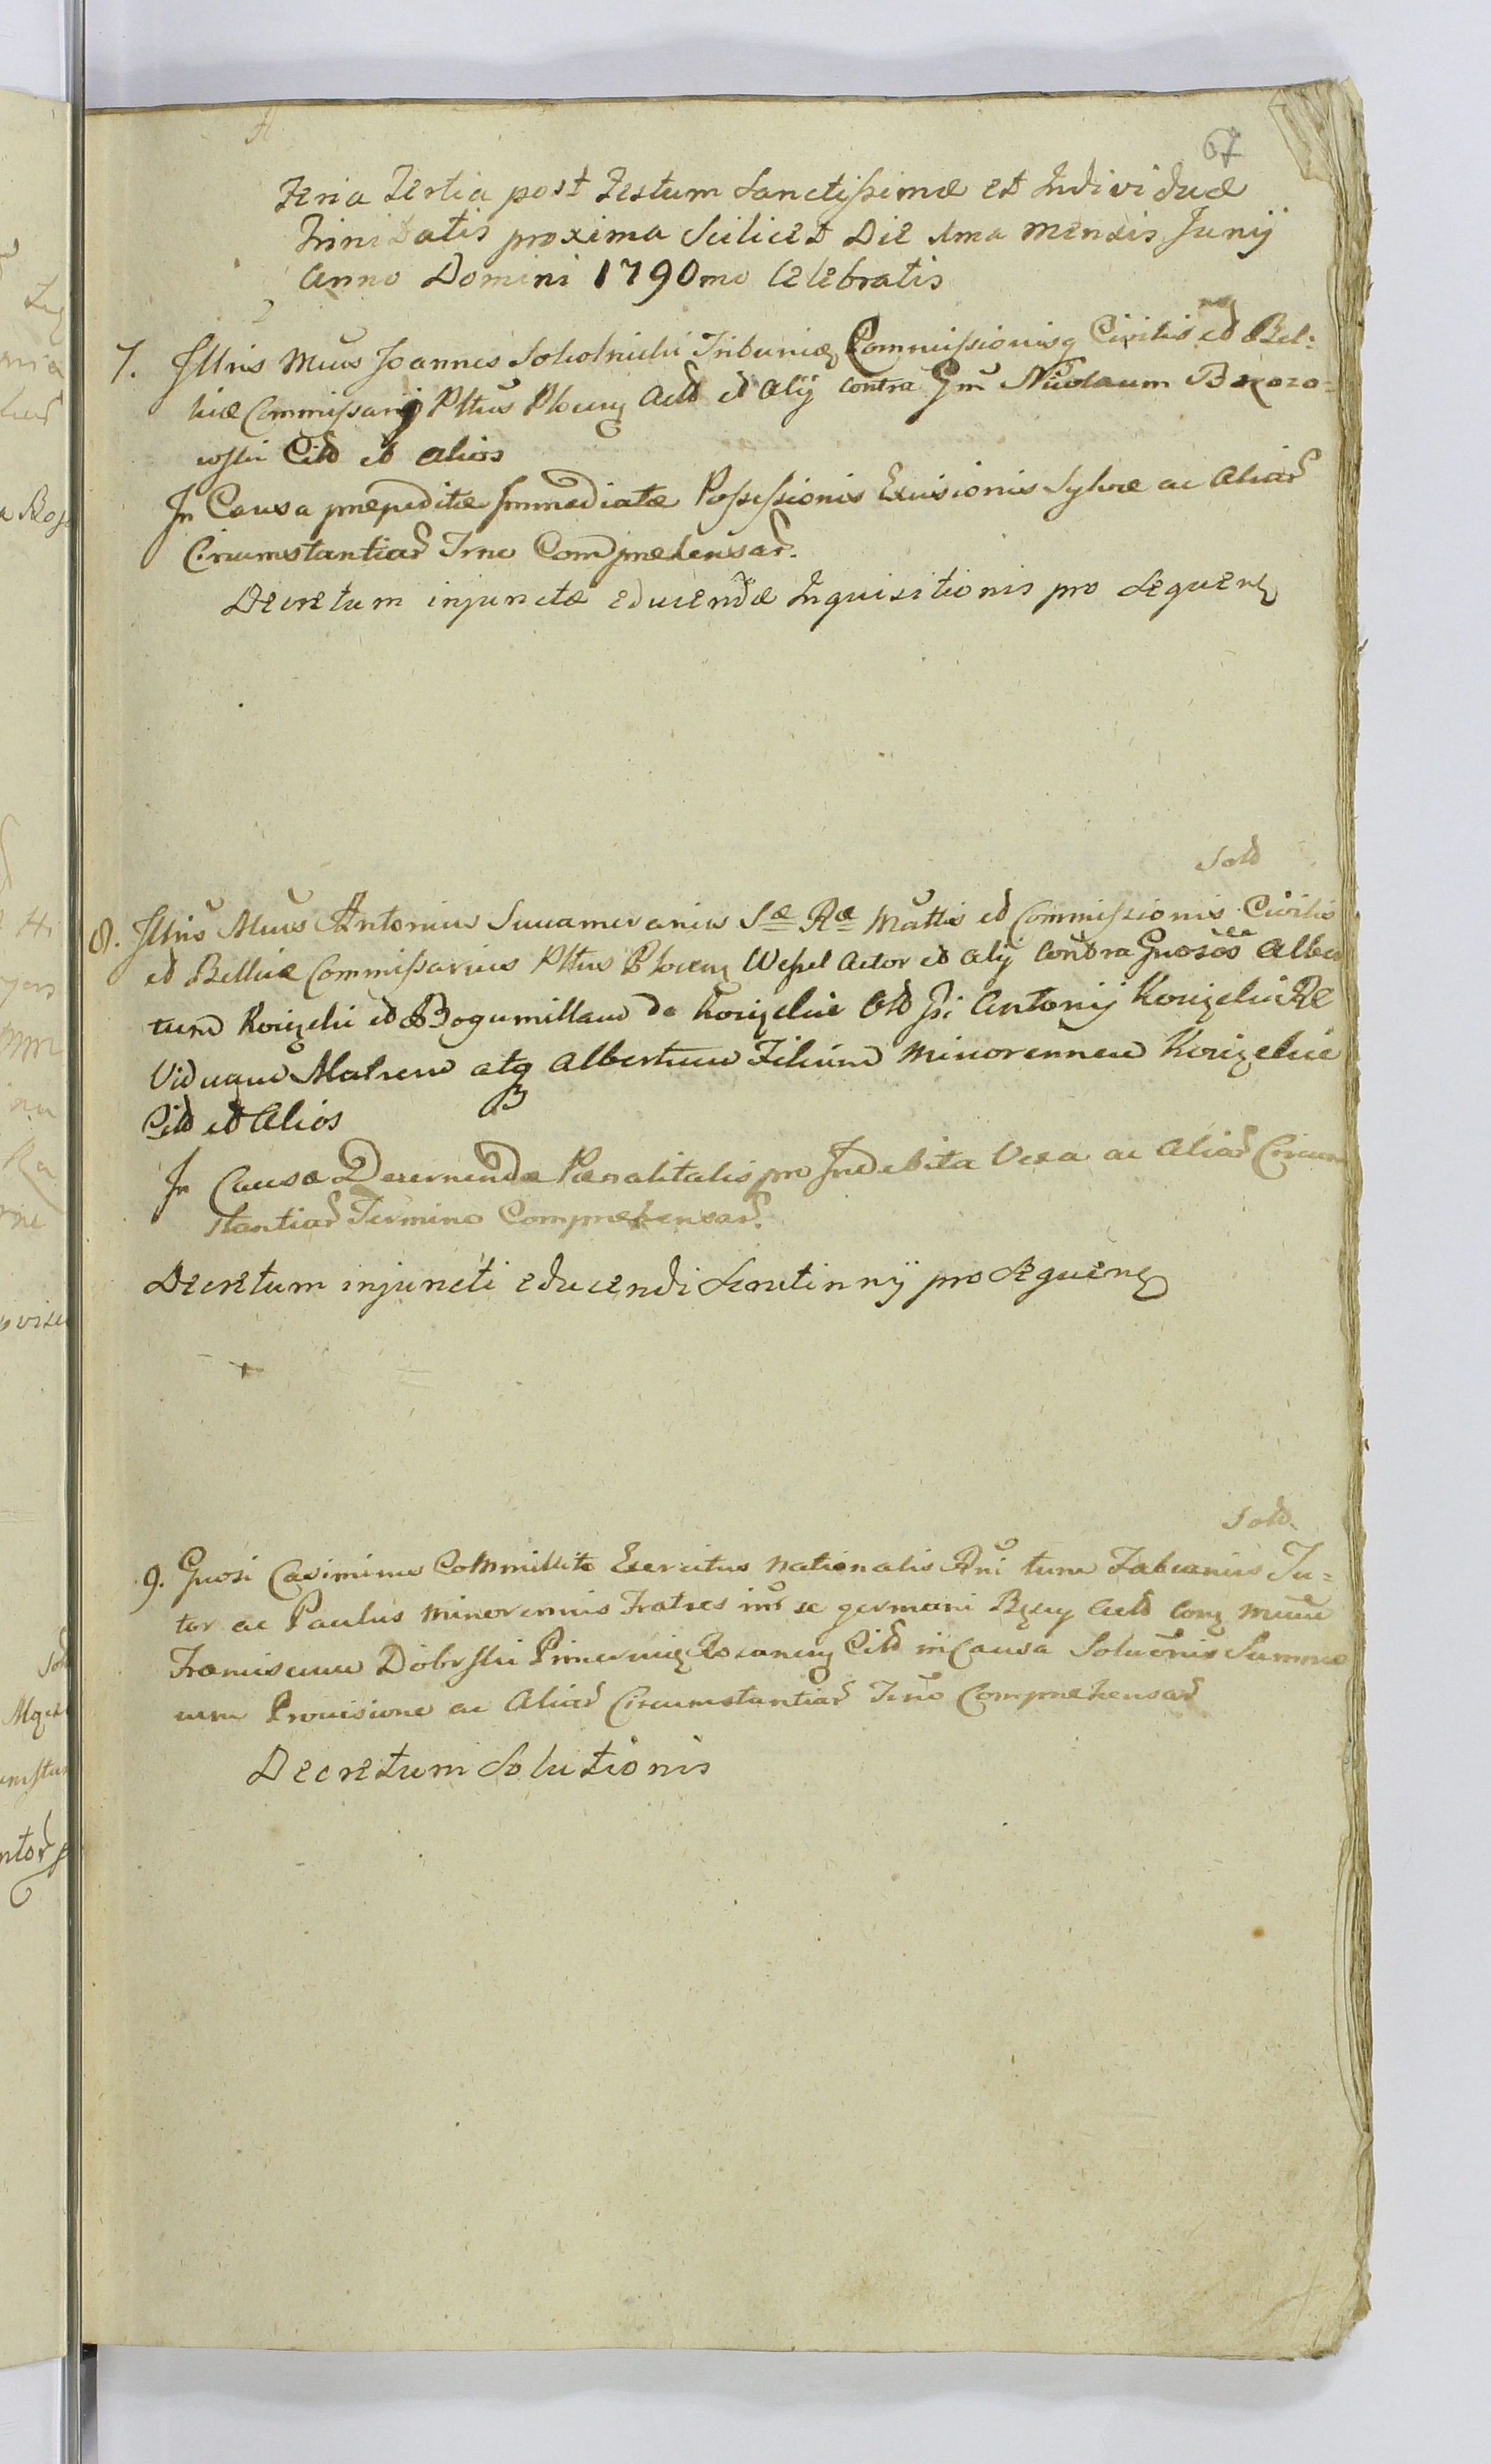 67
Feria Tertia post Festum Sanctissimæ et Individuæ
Trinitatis proxima Scilicet Die 1ma Mensis Junij
Anno Domini 1790mo Celebratis
7. Illris Mcus Joannes Sokolnicki Commissionisq Civilis et Bel=
licæ Commissarij Plttus Plocen Actt et Alij contra Nicolaum Brzozo=
wski Citt et alios
In Causa præpeditæ Immediatæ Possessionis Excisionis Sylvæ ac Aliar
Circumstantiar Trno Comprehensar.
Decretum injunctæ educendæ Inquisitionis pro Sequen
Solt
8. Illris Mcus Antonius Succamerarius Sæ Ræ Mattis et Commissionis Civilis
et Bellicæ Commissarius Plttus Plocen Wessel Actor et Alij Contra Gnosos Alber
tum et Bogumillam de Ott Antonij
Viduam Matrem atq Albertum Filium Minorennem
Citt et Alios
In Causa Decernendæ Pœnalitatis pro Indebita Vexa ac Aliar Circum
stantiar Termino Comprehensar.
Decretum injuncti educendi Scrutinnij pro Sequen
Solt.
9. Gnosi Casimirus Exercitus Nationalis Rni tum Fabianus Tu=
tor ac Paulus Minorennis Fratres intr se germani Actt
Franciscum Dobrski Citt in Causa Solucnis Summæ
cum Provisione ac Aliar Circumstantiar Trno Comprehensar
Decretum Solutionis